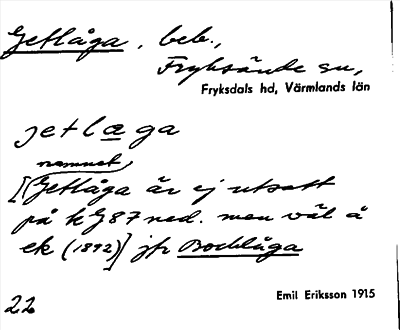 Getlåga, beb.,
Fryksände sn,
Fryksdals hd, Värmlands län
jetlaga
namnet
[Getlåga är ej utsatt
på k G87 ned. men väl å
ek (1892)] jfr Bocklåga
22
Emil Eriksson 1915